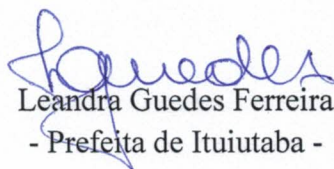 Lguedes
Leandra Guedes Ferreira
- Prefeita de Ituiutaba -